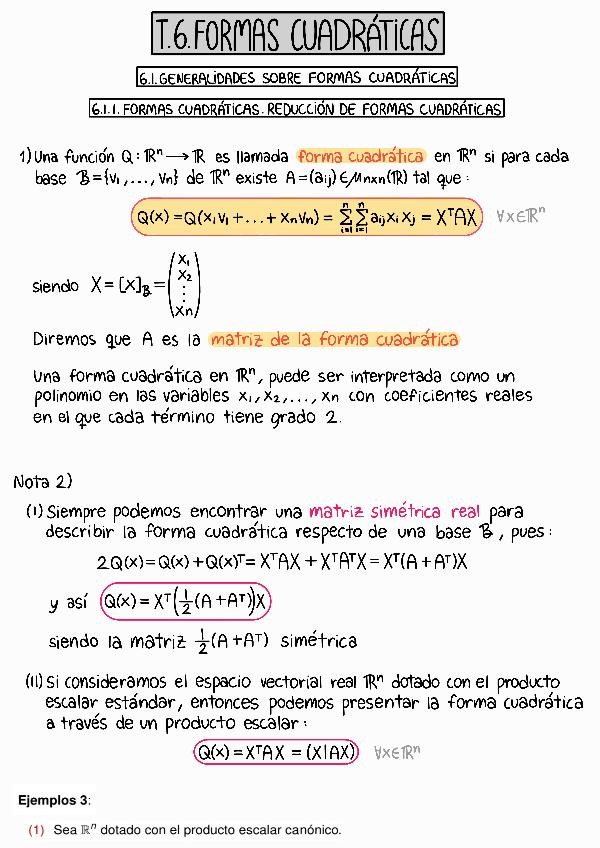 T.6.FORMAS CUADRÁTICAS
6.1.GENERALIDADES SOBRE FORMAS CUADRÁTICAS
6.1.1. FORMAS CUADRÁTICAS. REDUCCIÓN DE FORMAS CUADRÁTICAS
1) Una función Q: ℝⁿ → ℝ es llamada forma cuadrática en ℝⁿ si para cada
base B={v₁,...,vn} de ℝⁿ existe A=(aij)∈Mnxn(ℝ) tal que:
Q(x)=Q(x₁v₁+...+xnvn) = ∑ⁿᵢ₌₁ ∑ⁿᵢ₌₁ aij xi xj = XᵀAX ∀x∈ℝⁿ
siendo X=[x]B=(x₁ x₂ ⋮ xn)
Diremos que A es la matriz de la forma cuadrática
Una forma cuadrática en ℝⁿ, puede ser interpretada como un
polinomio en las variables x₁,x₂,...,xn con coeficientes reales
en el que cada término tiene grado 2.
Nota 2)
(I) Siempre podemos encontrar una matriz simétrica real para
describir la forma cuadrática respecto de una base B, pues:
2Q(x)=Q(x)+Q(x)ᵀ=XᵀAX+XᵀAᵀX=Xᵀ(A+Aᵀ)X
y así Q(x)=Xᵀ(½(A+Aᵀ))X
siendo la matriz ½(A+Aᵀ) simétrica
(II) Si consideramos el espacio vectorial real ℝⁿ dotado con el producto
escalar estándar, entonces podemos presentar la forma cuadrática
a través de un producto escalar:
Q(x)=XᵀAX=(X|AX) ∀x∈ℝⁿ
Ejemplos 3:
(1) Sea ℝⁿ dotado con el producto escalar canónico.